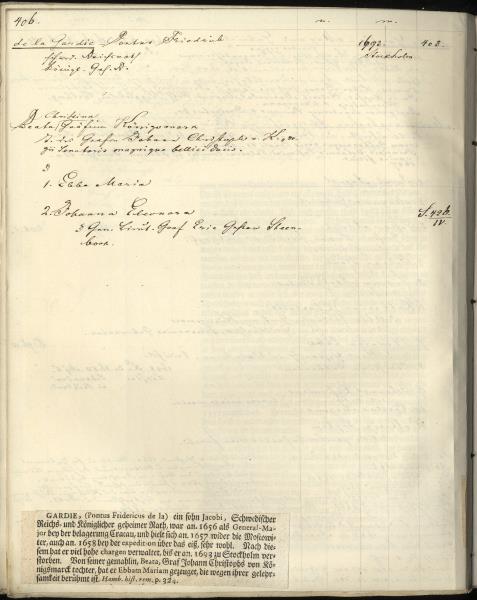 406. n. m.
de la Gardie Pontus Friedrich 1692. 402.
schwed. Reichsrath Stockholm
Königl. Geh. R.
Christina
Beata Gräfin Königsmarck
T. des Grafen Johann Christoph v. Kgm.
1. Ebba Maria
2. Johanna Eleonora
Gen. Lieut. Graf Eric Gustav Steen-
bock.
GARDIE, (Pontus Fridericus de la) ein sohn Jacobi, Schwedischer
Reichs- und Königlicher geheimer Rath, war an. 1656 als General-Ma-
jor bey der belagerung Cracau, und hielt sich an. 1657 wider die Moscowi-
ter, auch an. 1658 bey der expedition über das eiß, sehr wohl. Nach die-
sem hat er viel hohe chargen verwaltet, bis er an. 1693 zu Stockholm ver-
storben. Von seiner gemahlin, Beata, Graf Johann Christophs von Kö-
nigsmarck tochter, hat er Ebbam Mariam gezeuget, die wegen ihrer gelehr-
samkeit berühmt ist. Hamb. hist. rem. p. 324.